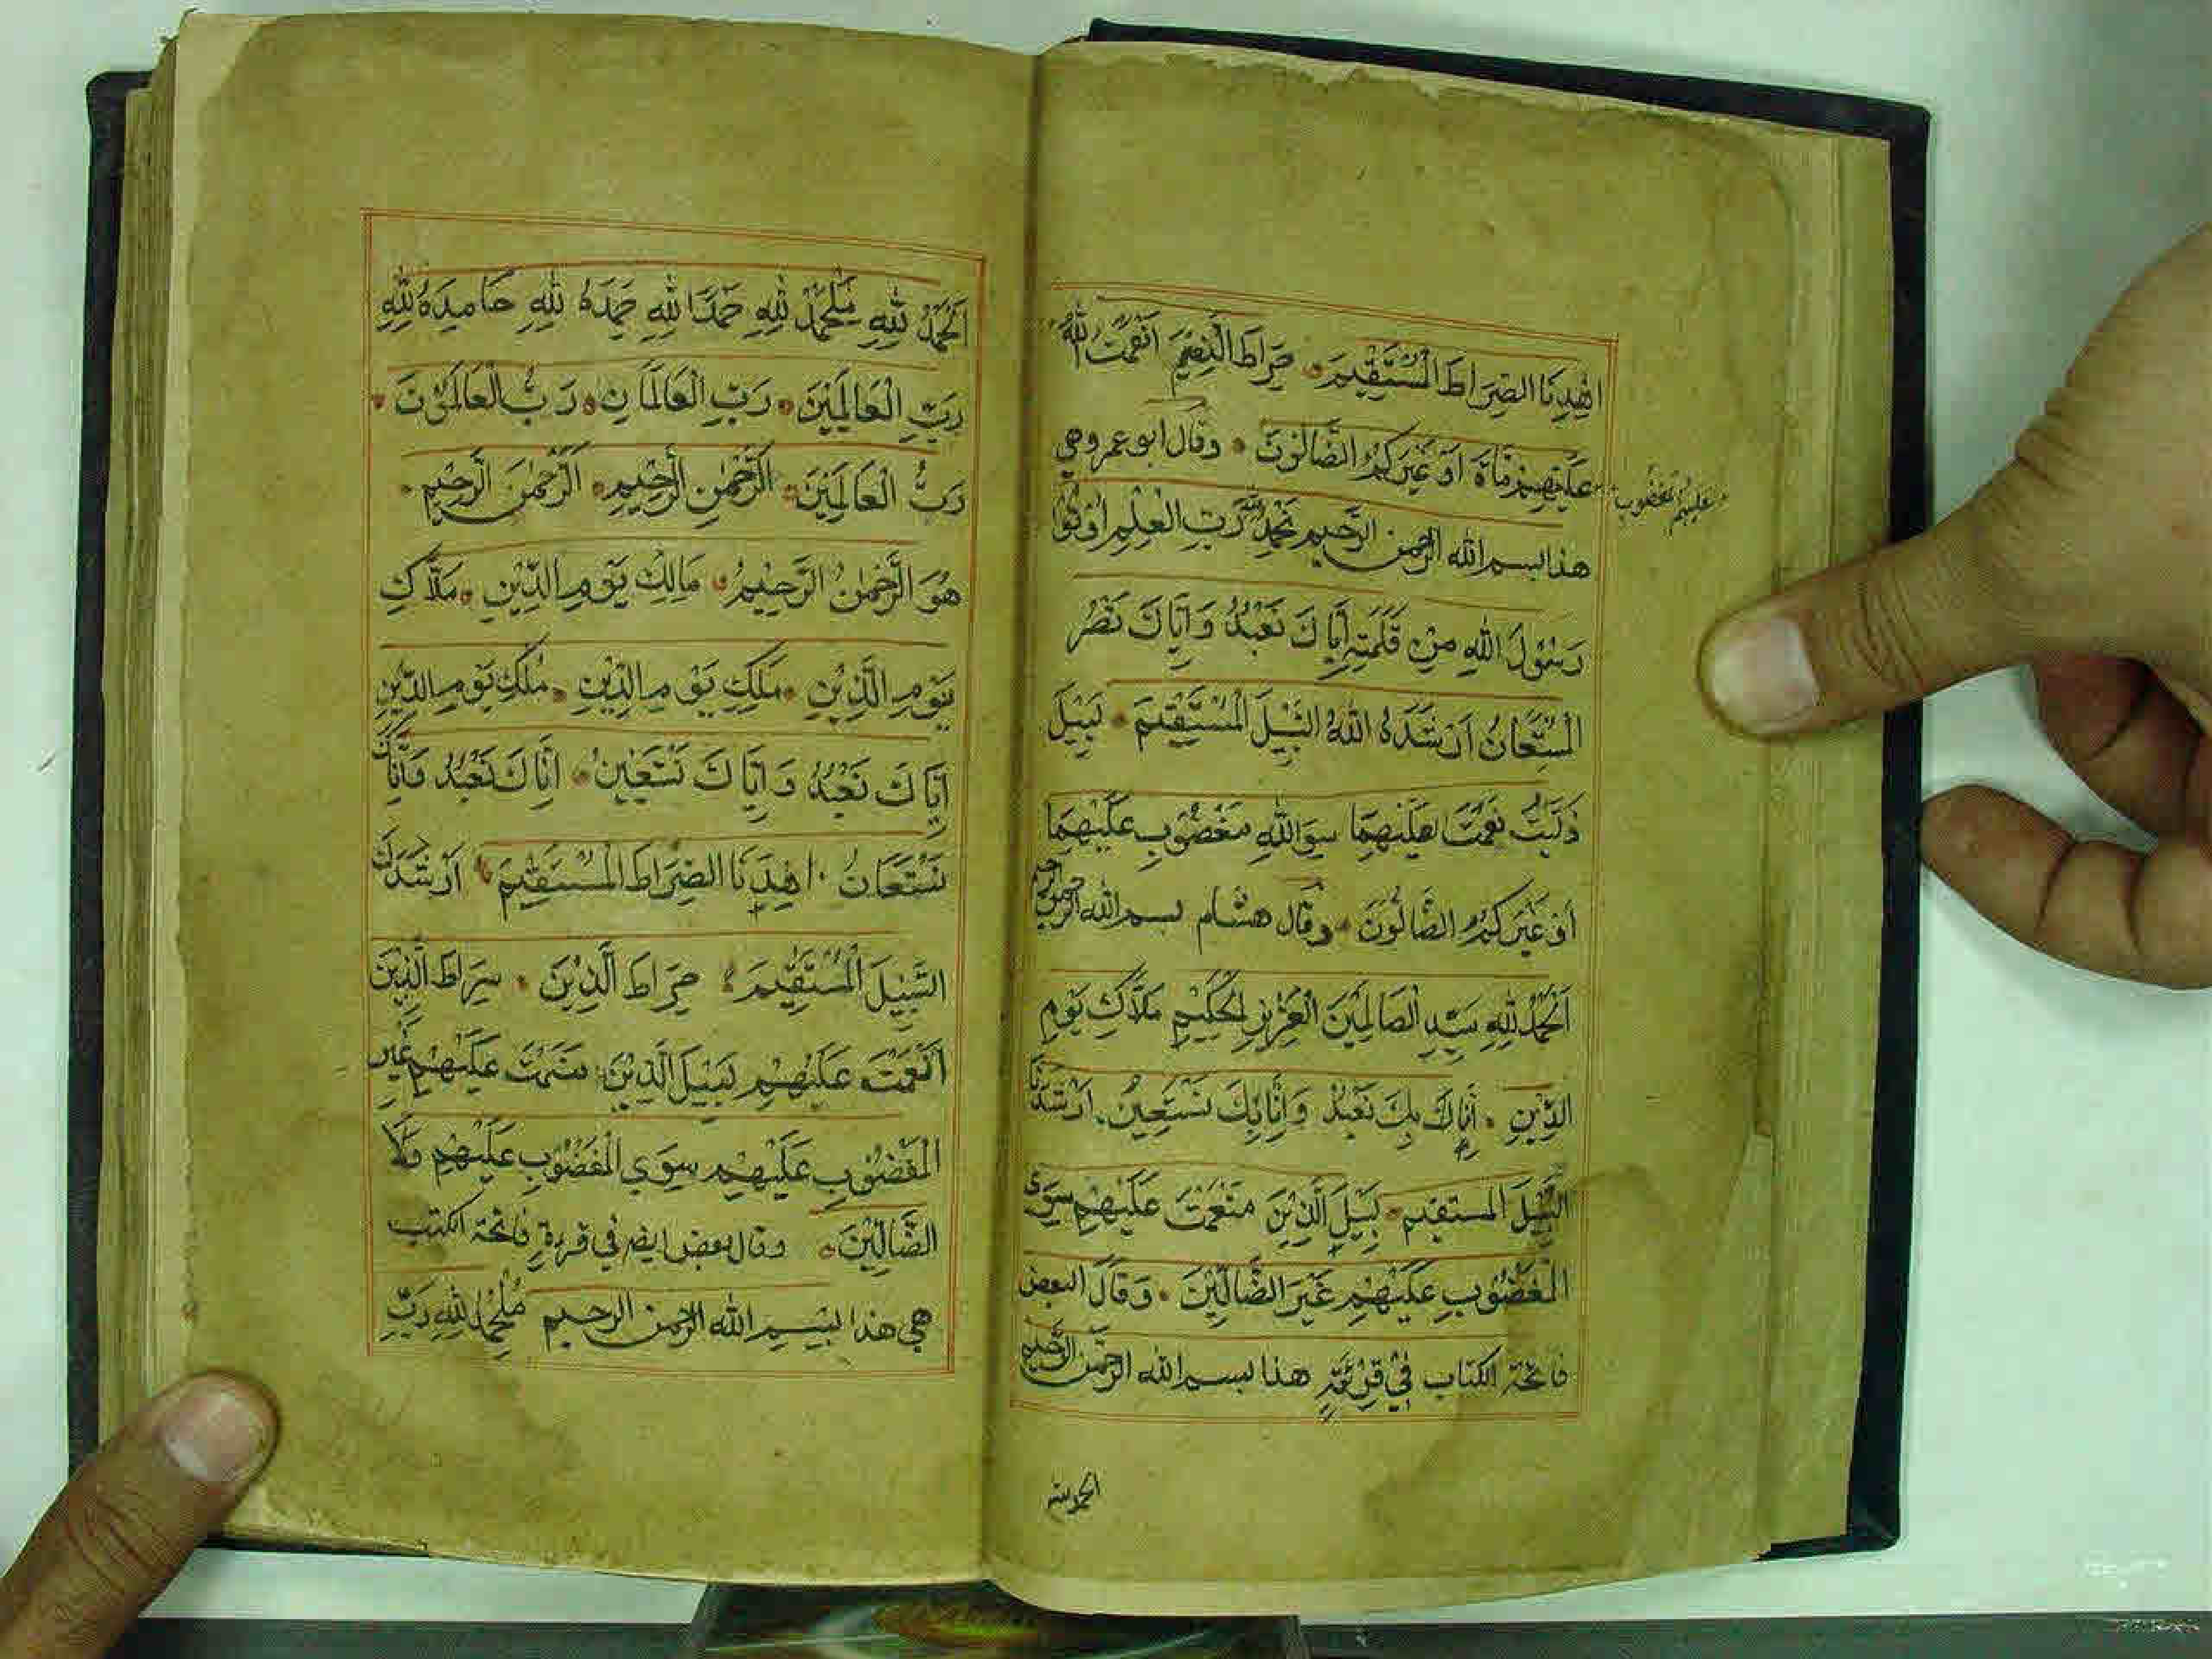 اهْدِنَا الصِّرَاطَ الْمُسْتَقِيْمَ صِرَاطَ الَّذِيْنَ اَنْعَمْتَ اللّٰهُ
عَلَيْهِمْ اَوْ غَيْرَكُمُ الضَّالُّوْنَ وقال ابو عمرو هي
عليهم مغضوب
هذا بسم الله الرحمن الرحيم رَبِّ
رَسُوْلَ اللهِ مِنْ اِيَّاكَ نَعْبُدُ وَاِيَّاكَ
الْمُسْتَعَانُ اَرْشَدَهُ اللهُ السَّبِيْلَ الْمُسْتَقِيْمَ سَبِيْلَ
نَعْمَتْ سِوَ اللّٰهِ مَغْضُوْبِ عَلَيْهِمَا
اَوْ غَيْرَكُمُ الضَّالُّوْنَ وقال هشام بسم الله الرحمن الرحيم
اَلْحَمْدُ لِلّٰهِ سَيِّدِ الْعَزِيْزِ الْحَكِيْمِ مَلَّاكِ يَوْمِ
الدِّيْنِ بِكَ نَعْبُدُ نَسْتَعِيْنُ اَرْشَدَنَا
السَّبِيْلَ المستقيم سَبِيْلَ الَّذِيْنَ مَنْعَمْتَ عَلَيْهِمْ سِوَى
الْمَغْضُوْبِ عَلَيْهِمْ غَيْرَ الضَّالِّيْنَ وَقَالَ البعض
فاتحة الكتاب فِيْ هذا بسم الله الرحمن الرحيم
الحمد لله
اَلْحَمْدُ لِلّٰهِ مَلْحَمْدُ لِلّٰهِ حَمْدًا لِلّٰهِ حَمْدَهُ لِلّٰهِ حَامِدَهُ لِلّٰهِ
رَبِّ الْعَالَمِيْنَ رَبِّ الْعَالَمَانِ رَبُّ الْعَالَمُوْنَ
رَبُّ الْعَالَمِيْنَ اَلرَّحْمٰنِ الرَّحِيْمِ اَلرَّحْمٰنَ الرَّحِيْمِ
هُوَ الرَّحْمٰنُ الرَّحِيْمُ مَالِكِ يَوْمِ الدِّيْنِ مَلَّاكِ
يَوْمِ الدِّيْنِ مَلِكِ يَوْمِ الدِّيْنِ مُلْكِ يَوْمِ الدِّيْنِ
اِيَّاكَ نَعْبُدُ وَاِيَّاكَ نَسْتَعِيْنُ اَيَّاكَ نَعْبُدُ وَاَيَّاكَ
نَسْتَعَانُ اهْدِنَا الصِّرَاطَ الْمُسْتَقِيْمَ اَرْشَدَكَ
السَّبِيْلَ الْمُسْتَقِيْمَ صِرَاطَ الَّذِيْنَ سِرَاطَ الَّذِيْنَ
اَنْعَمْتَ عَلَيْهِمْ سَبِيْلَ الَّذِيْنَ عَلَيْهِمْ غَيْرِ
الْمَغْضُوْبِ عَلَيْهِمْ سِوَى الْمَغْضُوْبِ عَلَيْهِمْ وَلَا
الضَّالِّيْنَ وقال بعض ايضر في قرءة فاتحة الكتب
هي هذا بسم الله الرحمن الرحيم مَلْحَمْدُ لِلّٰهِ رَبِّ